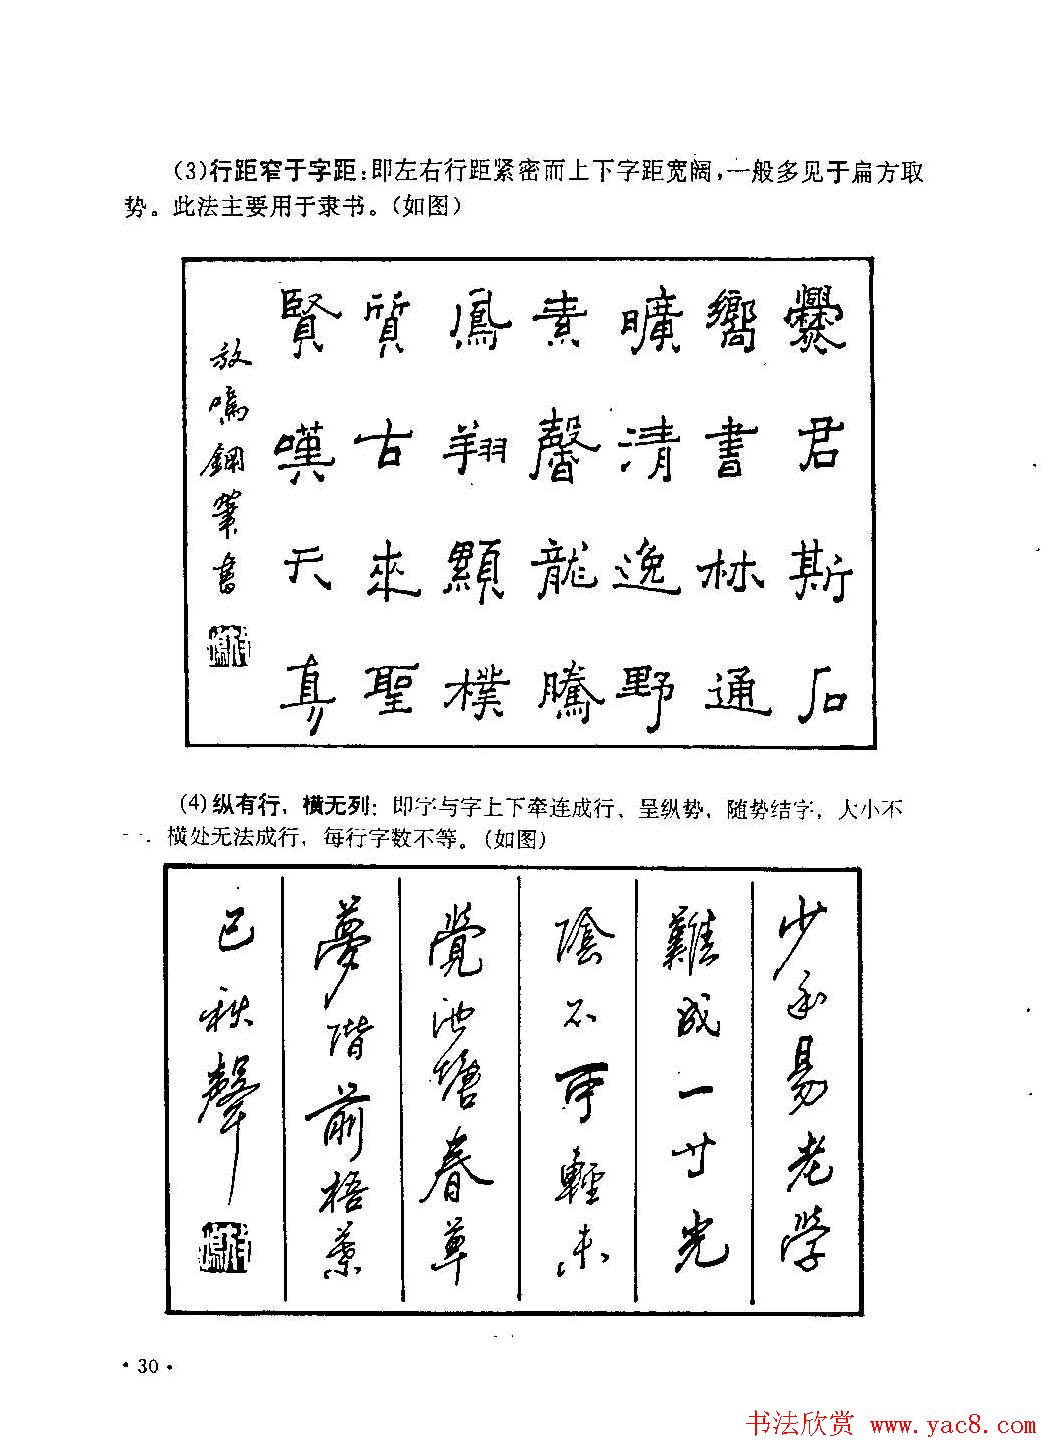 (3)行距窄于字距:即左右行距紧密而上下字距宽阔,一般多见于扁方取
势。此法主要用于隶书。(如图)
爨君斯石
嚮書林通
曠清逸野
素馨龍騰
鳳翔顯樸
質古來聖
賢嘆天真
放鳴鋼筆書
(4)纵有行,横无列:即字与字上下牵连成行,呈纵势,随势结字,大小不
一.横处无法成行,每行字数不等。(如图)
少年易老學
難成一寸光
陰不可輕未
覺池塘春草
夢階前梧葉
已秋聲
·30·
书法欣赏 www.yac8.com